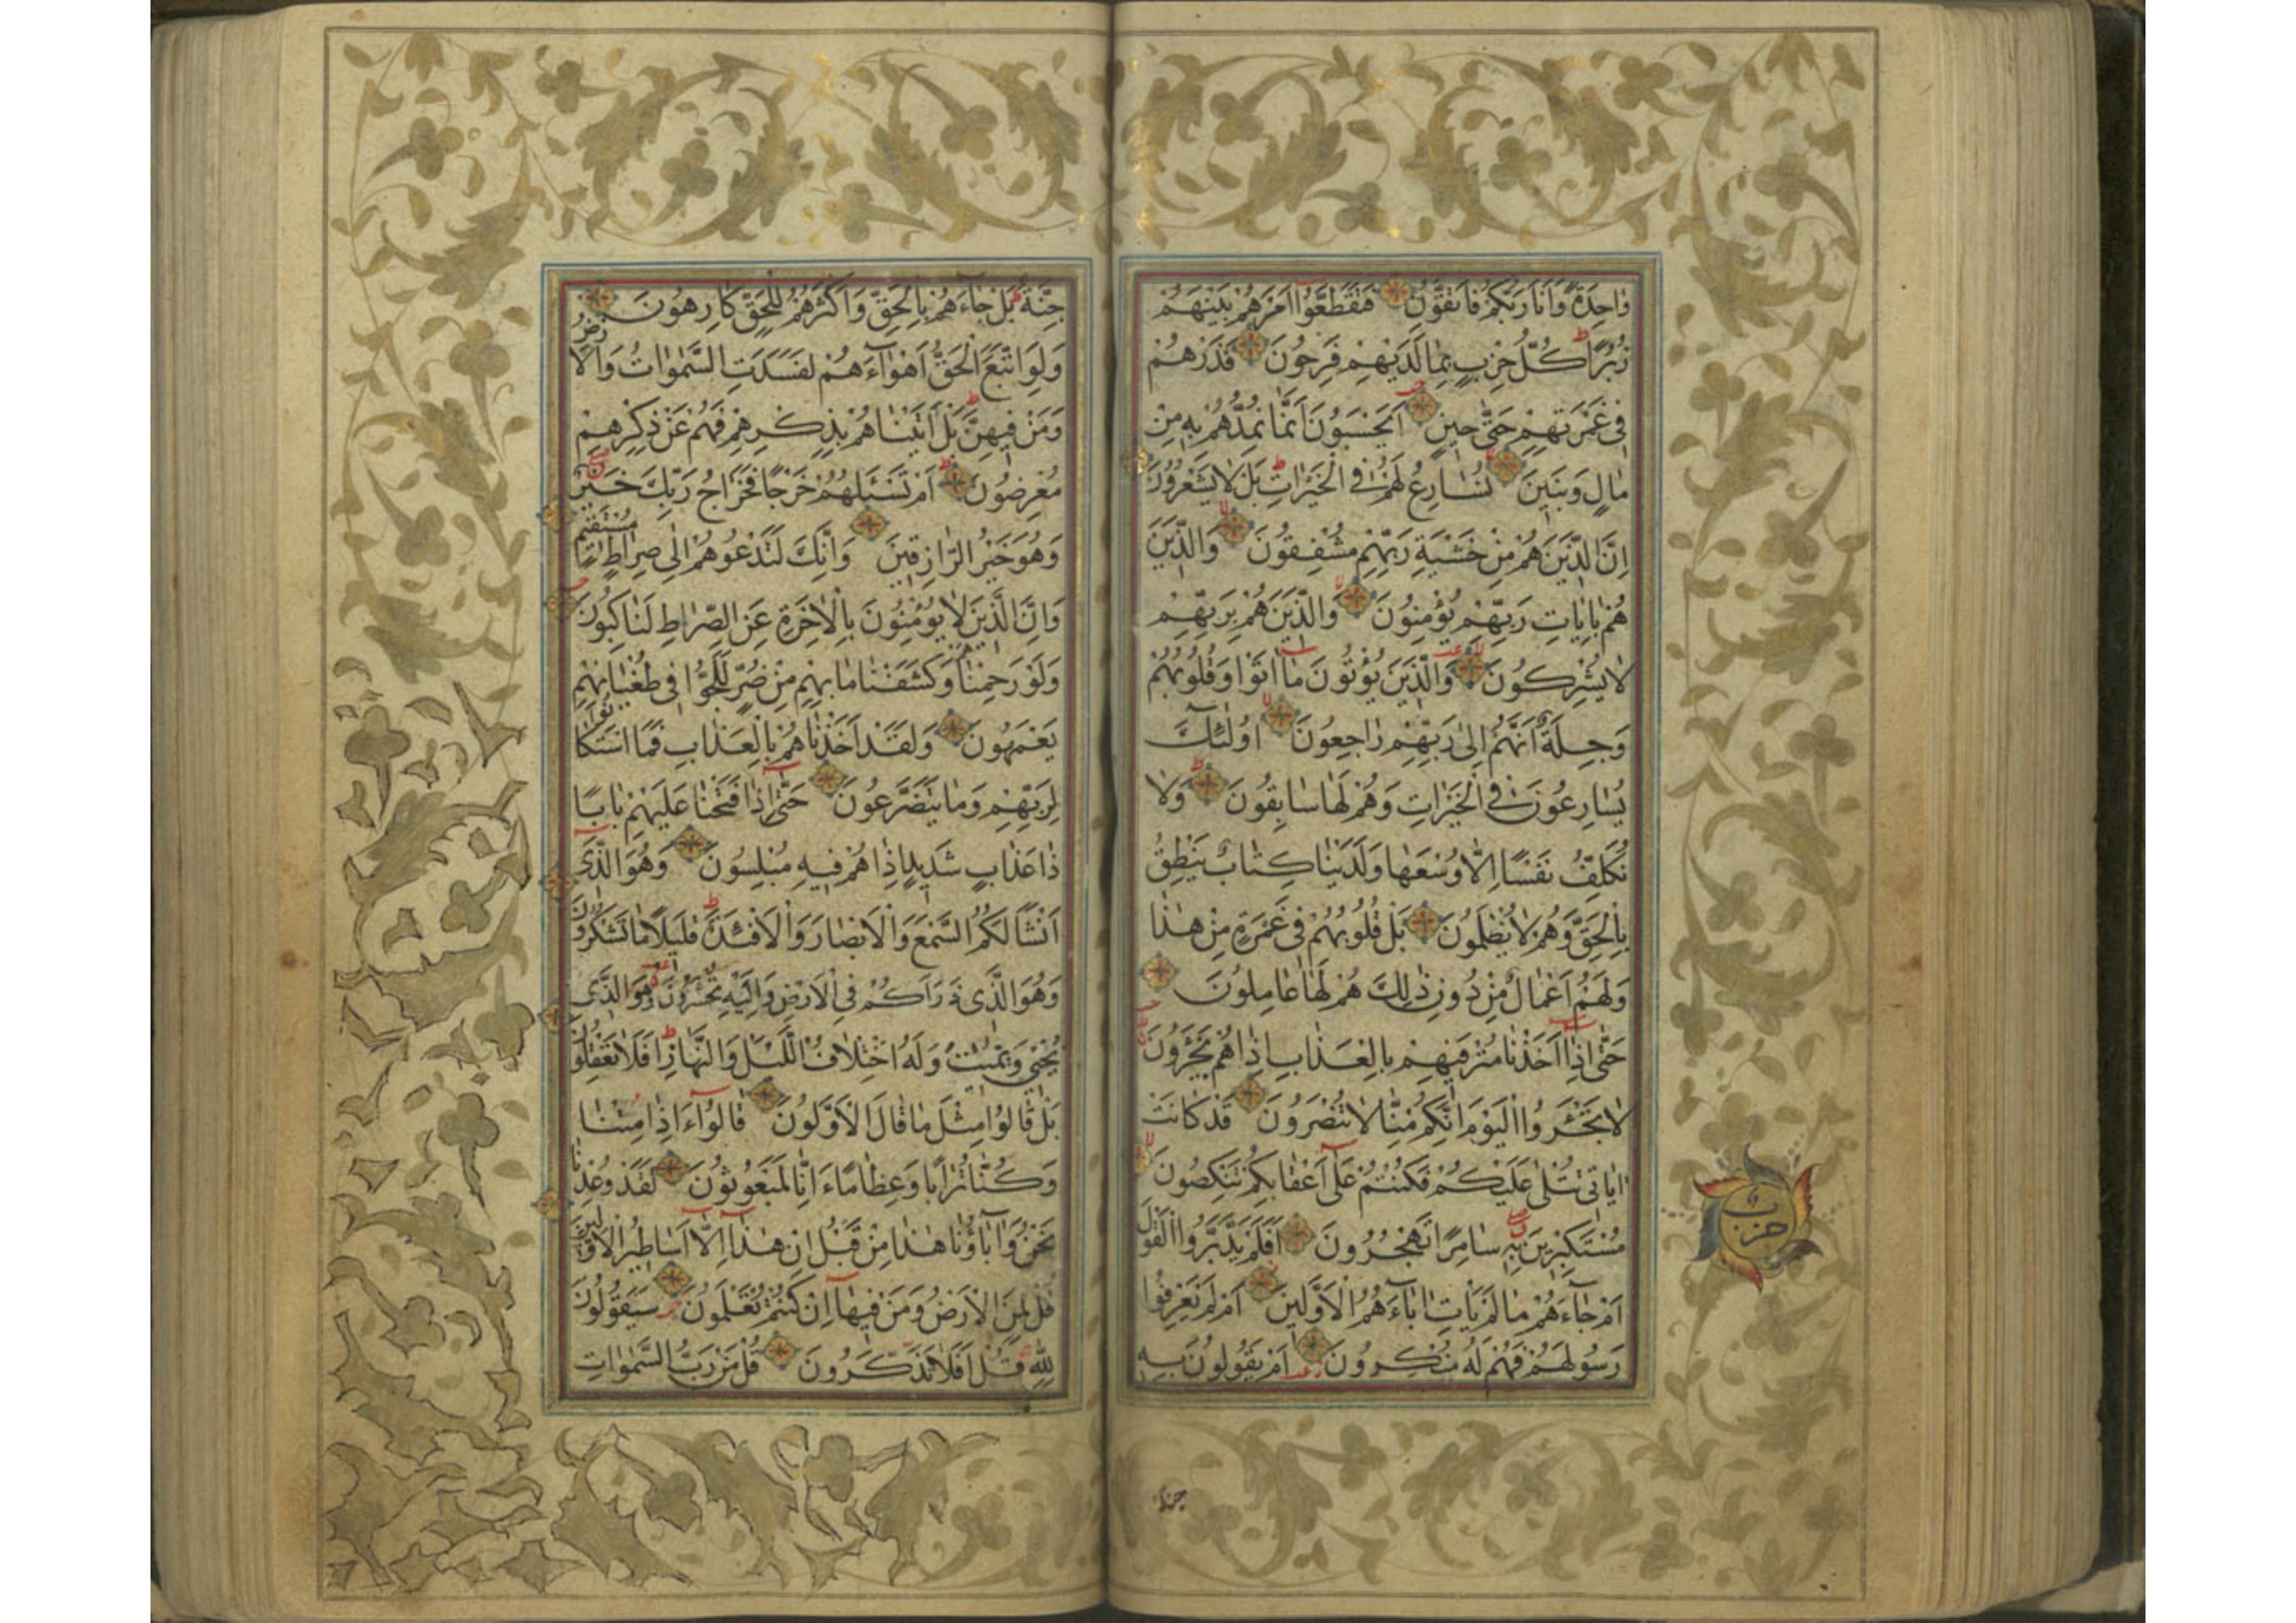 وَاحِدَةً وَاَنَا رَبُّكُمْ فَاتَّقُونِ فَتَقَطَّعُوا اَمْرَهُمْ بَيْنَهُمْ
زُبُرًا ط كُلُّ حِزْبٍ بِمَا لَدَيْهِمْ فَرِحُونَ فَذَرْهُمْ
فِي غَمْرَتِهِمْ حَتّٰى حِينٍ اَيَحْسَبُونَ اَنَّمَا نُمِدُّهُمْ بِهِ مِنْ
مَالٍ وَبَنِينَ لا نُسَارِعُ لَهُمْ فِي الْخَيْرَاتِ ط بَلْ لَا يَشْعُرُونَ
اِنَّ الَّذِينَ هُمْ مِنْ خَشْيَةِ رَبِّهِمْ مُشْفِقُونَ لا وَالَّذِينَ
هُمْ بِاٰيَاتِ رَبِّهِمْ يُؤْمِنُونَ لا وَالَّذِينَ هُمْ بِرَبِّهِمْ
لَا يُشْرِكُونَ لا وَالَّذِينَ يُؤْتُونَ مَا اٰتَوْا وَقُلُوبُهُمْ
وَجِلَةٌ اَنَّهُمْ اِلٰى رَبِّهِمْ رَاجِعُونَ لا اُولٰئِكَ
يُسَارِعُونَ فِي الْخَيْرَاتِ وَهُمْ لَهَا سَابِقُونَ ط وَلَا
نُكَلِّفُ نَفْسًا اِلَّا وُسْعَهَا وَلَدَيْنَا كِتَابٌ يَنْطِقُ
بِالْحَقِّ وَهُمْ لَا يُظْلَمُونَ بَلْ قُلُوبُهُمْ فِي غَمْرَةٍ مِنْ هٰذَا
وَلَهُمْ اَعْمَالٌ مِنْ دُونِ ذٰلِكَ هُمْ لَهَا عَامِلُونَ
حَتّٰى اِذَا اَخَذْنَا مُتْرَفِيهِمْ بِالْعَذَابِ اِذَا هُمْ يَجْئَرُونَ
لَا تَجْئَرُوا الْيَوْمَ اِنَّكُمْ مِنَّا لَا تُنْصَرُونَ قَدْ كَانَتْ
اٰيَاتِي تُتْلٰى عَلَيْكُمْ فَكُنْتُمْ عَلٰى اَعْقَابِكُمْ تَنْكِصُونَ لا
مُسْتَكْبِرِينَ بِهِ سَامِرًا تَهْجُرُونَ اَفَلَمْ يَدَّبَّرُوا الْقَوْلَ
اَمْ جَاءَهُمْ مَا لَمْ يَاْتِ اٰبَاءَهُمُ الْاَوَّلِينَ اَمْ لَمْ يَعْرِفُوا
رَسُولَهُمْ فَهُمْ لَهُ مُنْكِرُونَ اَمْ يَقُولُونَ بِهِ
حزب
جِنَّةٌ ط بَلْ جَاءَهُمْ بِالْحَقِّ وَاَكْثَرُهُمْ لِلْحَقِّ كَارِهُونَ
وَلَوِ اتَّبَعَ الْحَقُّ اَهْوَاءَهُمْ لَفَسَدَتِ السَّمٰوَاتُ وَالْاَرْضُ
وَمَنْ فِيهِنَّ ط بَلْ اَتَيْنَاهُمْ بِذِكْرِهِمْ فَهُمْ عَنْ ذِكْرِهِمْ
مُعْرِضُونَ ط اَمْ تَسْئَلُهُمْ خَرْجًا فَخَرَاجُ رَبِّكَ خَيْرٌ
وَهُوَ خَيْرُ الرَّازِقِينَ وَاِنَّكَ لَتَدْعُوهُمْ اِلٰى صِرَاطٍ مُسْتَقِيمٍ
وَاِنَّ الَّذِينَ لَا يُؤْمِنُونَ بِالْاٰخِرَةِ عَنِ الصِّرَاطِ لَنَاكِبُونَ
وَلَوْ رَحِمْنَاهُمْ وَكَشَفْنَا مَا بِهِمْ مِنْ ضُرٍّ لَلَجُّوا فِي طُغْيَانِهِمْ
يَعْمَهُونَ وَلَقَدْ اَخَذْنَاهُمْ بِالْعَذَابِ فَمَا اسْتَكَانُوا
لِرَبِّهِمْ وَمَا يَتَضَرَّعُونَ حَتّٰى اِذَا فَتَحْنَا عَلَيْهِمْ بَابًا
ذَا عَذَابٍ شَدِيدٍ اِذَا هُمْ فِيهِ مُبْلِسُونَ وَهُوَ الَّذِي
اَنْشَاَ لَكُمُ السَّمْعَ وَالْاَبْصَارَ وَالْاَفْئِدَةَ ط قَلِيلًا مَا تَشْكُرُونَ
وَهُوَ الَّذِي ذَرَاَكُمْ فِي الْاَرْضِ وَاِلَيْهِ تُحْشَرُونَ وَهُوَ الَّذِي
يُحْيِي وَيُمِيتُ وَلَهُ اخْتِلَافُ اللَّيْلِ وَالنَّهَارِ ط اَفَلَا تَعْقِلُونَ
بَلْ قَالُوا مِثْلَ مَا قَالَ الْاَوَّلُونَ قَالُوا ءَاِذَا مِتْنَا
وَكُنَّا تُرَابًا وَعِظَامًا ءَاِنَّا لَمَبْعُوثُونَ لَقَدْ وُعِدْنَا
نَحْنُ وَاٰبَاؤُنَا هٰذَا مِنْ قَبْلُ اِنْ هٰذَا اِلَّا اَسَاطِيرُ الْاَوَّلِينَ
قُلْ لِمَنِ الْاَرْضُ وَمَنْ فِيهَا اِنْ كُنْتُمْ تَعْلَمُونَ سَيَقُولُونَ
لِلّٰهِ قُلْ اَفَلَا تَذَكَّرُونَ قُلْ مَنْ رَبُّ السَّمٰوَاتِ